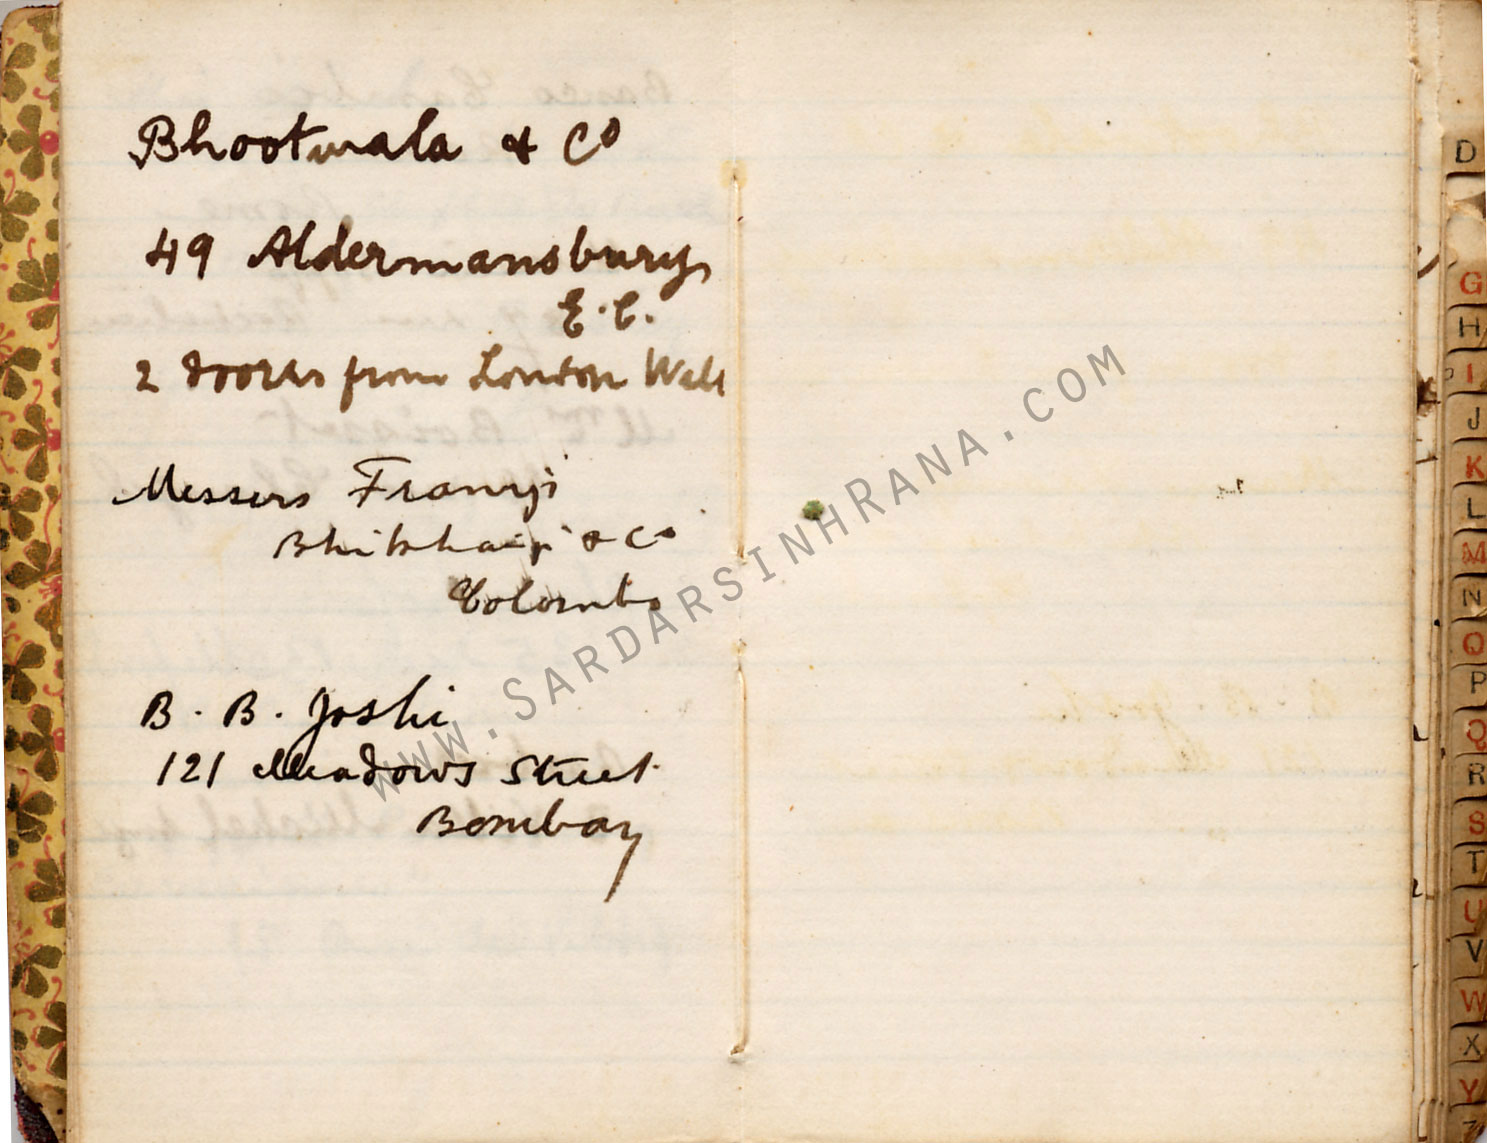 Bhootwala & Co
49 Aldermansbury
E.C.
2 doors from London Wall
Messers Framji
Bhikhaji & Co
Colombo
B. B. Joshi
121 Meadows Street
Bombay
www.SARDARSINHRANA.COM
D
G
H
I
J
K
L
M
N
O
P
Q
R
S
T
U
V
W
X
Y